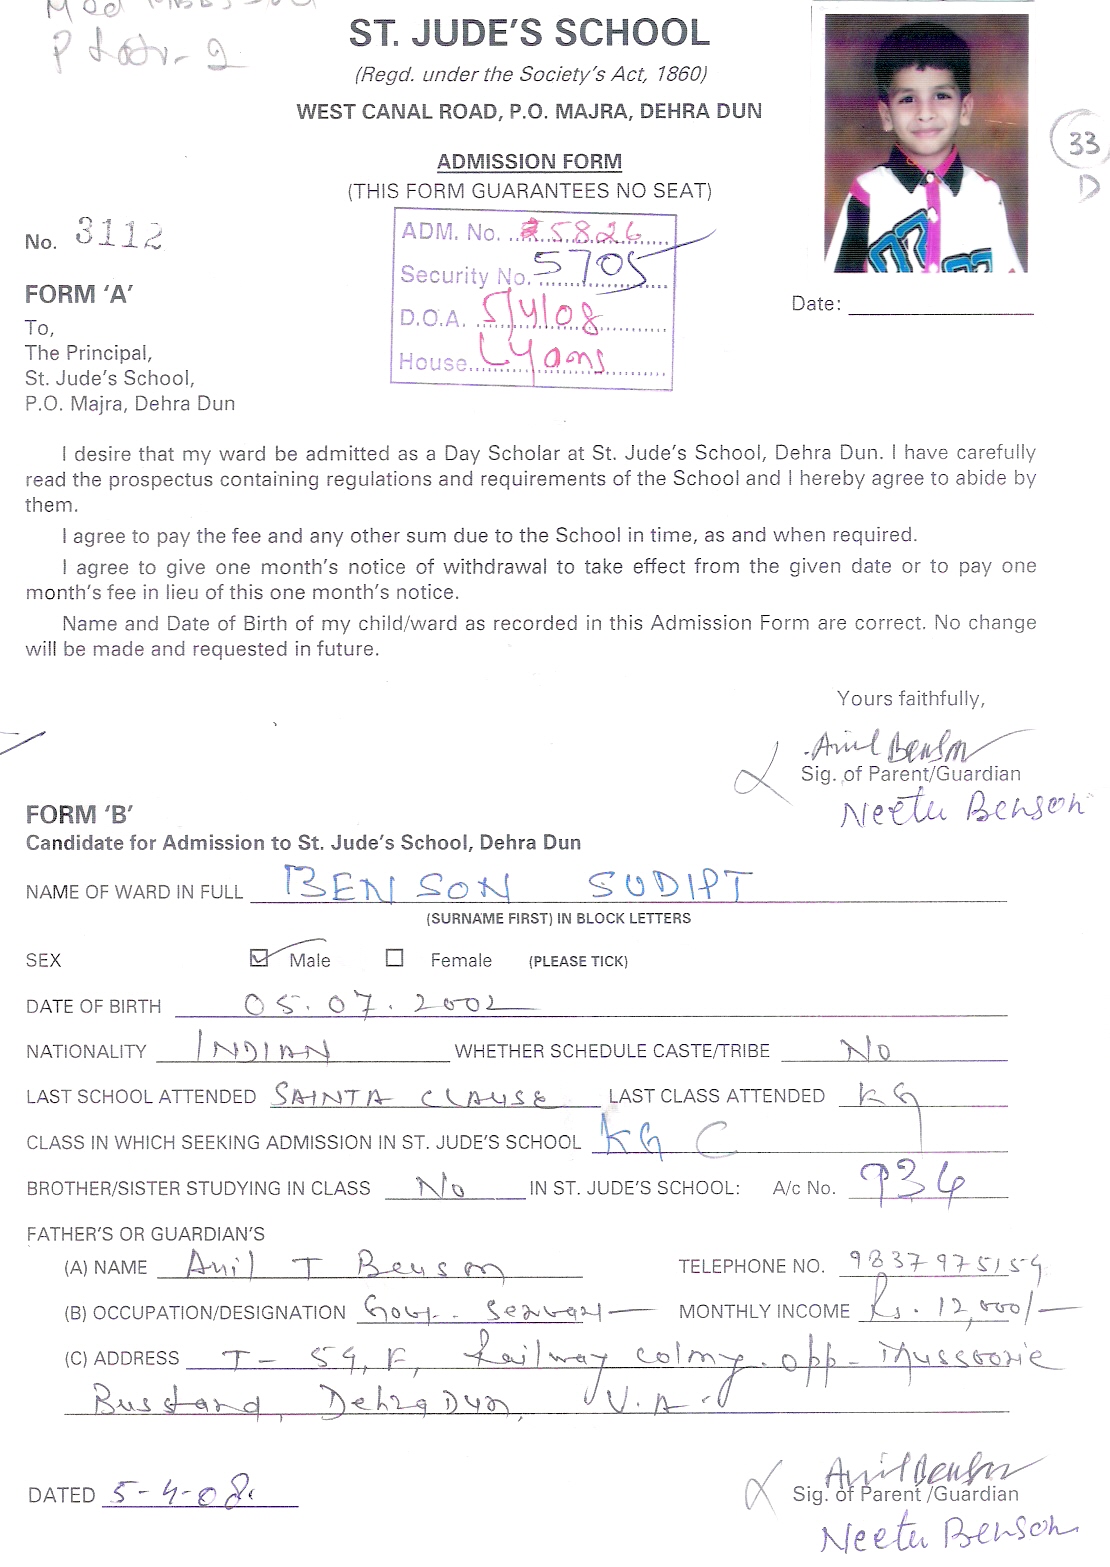 ST. JUDE'S SCHOOL
(Regd. under the Society's Act, 1860)
WEST CANAL ROAD, P.O. MAJRA, DEHRA DUN
33
D
ADMISSION FORM
(THIS FORM GUARANTEES NO SEAT)
No. 3112
ADM. No. 5826
Security No. 5705
D.O.A. 5/4/08
House Lyons
Date:
FORM 'A'
To,
The Principal,
St. Jude's School,
P.O. Majra, Dehra Dun
I desire that my ward be admitted as a Day Scholar at St. Jude's School, Dehra Dun. I have carefully
read the prospectus containing regulations and requirements of the School and I hereby agree to abide by
them.
I agree to pay the fee and any other sum due to the School in time, as and when required.
I agree to give one month's notice of withdrawal to take effect from the given date or to pay one
month's fee in lieu of this one month's notice.
Name and Date of Birth of my child/ward as recorded in this Admission Form are correct. No change
will be made and requested in future.
Yours faithfully,
Anil Benson
Sig. of Parent/Guardian
Neetu Benson
FORM 'B'
Candidate for Admission to St. Jude's School, Dehra Dun
NAME OF WARD IN FULL BENSON SUDIPT
(SURNAME FIRST) IN BLOCK LETTERS
SEX Male Female (PLEASE TICK)
DATE OF BIRTH 05.07.2002
NATIONALITY INDIAN WHETHER SCHEDULE CASTE/TRIBE No
LAST SCHOOL ATTENDED SAINTA CLAUSE LAST CLASS ATTENDED KG
CLASS IN WHICH SEEKING ADMISSION IN ST. JUDE'S SCHOOL KG C
BROTHER/SISTER STUDYING IN CLASS No IN ST. JUDE'S SCHOOL: A/c No. 934
FATHER'S OR GUARDIAN'S
(A) NAME Anil T Benson TELEPHONE NO. 9837975159
(B) OCCUPATION/DESIGNATION Govt. Servant MONTHLY INCOME Rs. 12,000/-
(C) ADDRESS T - 59, F, Railway colony. opp - Mussoorie
Busstand, DehraDun, U.A.
DATED 5-4-08.
Anil Benson
Sig. of Parent /Guardian
Neetu Benson